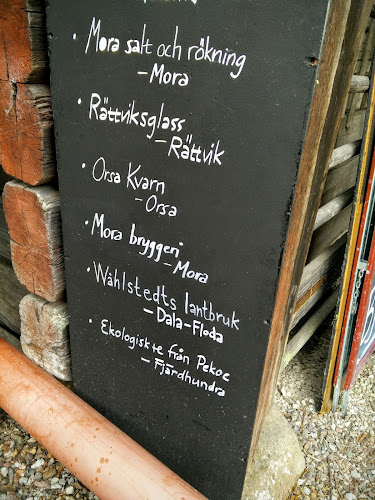 • Mora salt och rökning
– Mora
• Rättviksglass
– Rättvik
• Orsa Kvarn
– Orsa
• Mora bryggeri
– Mora
• Wåhlstedts lantbruk
– Dala-Floda
• Ekologiskt te från Pekoe
– Fjärdhundra